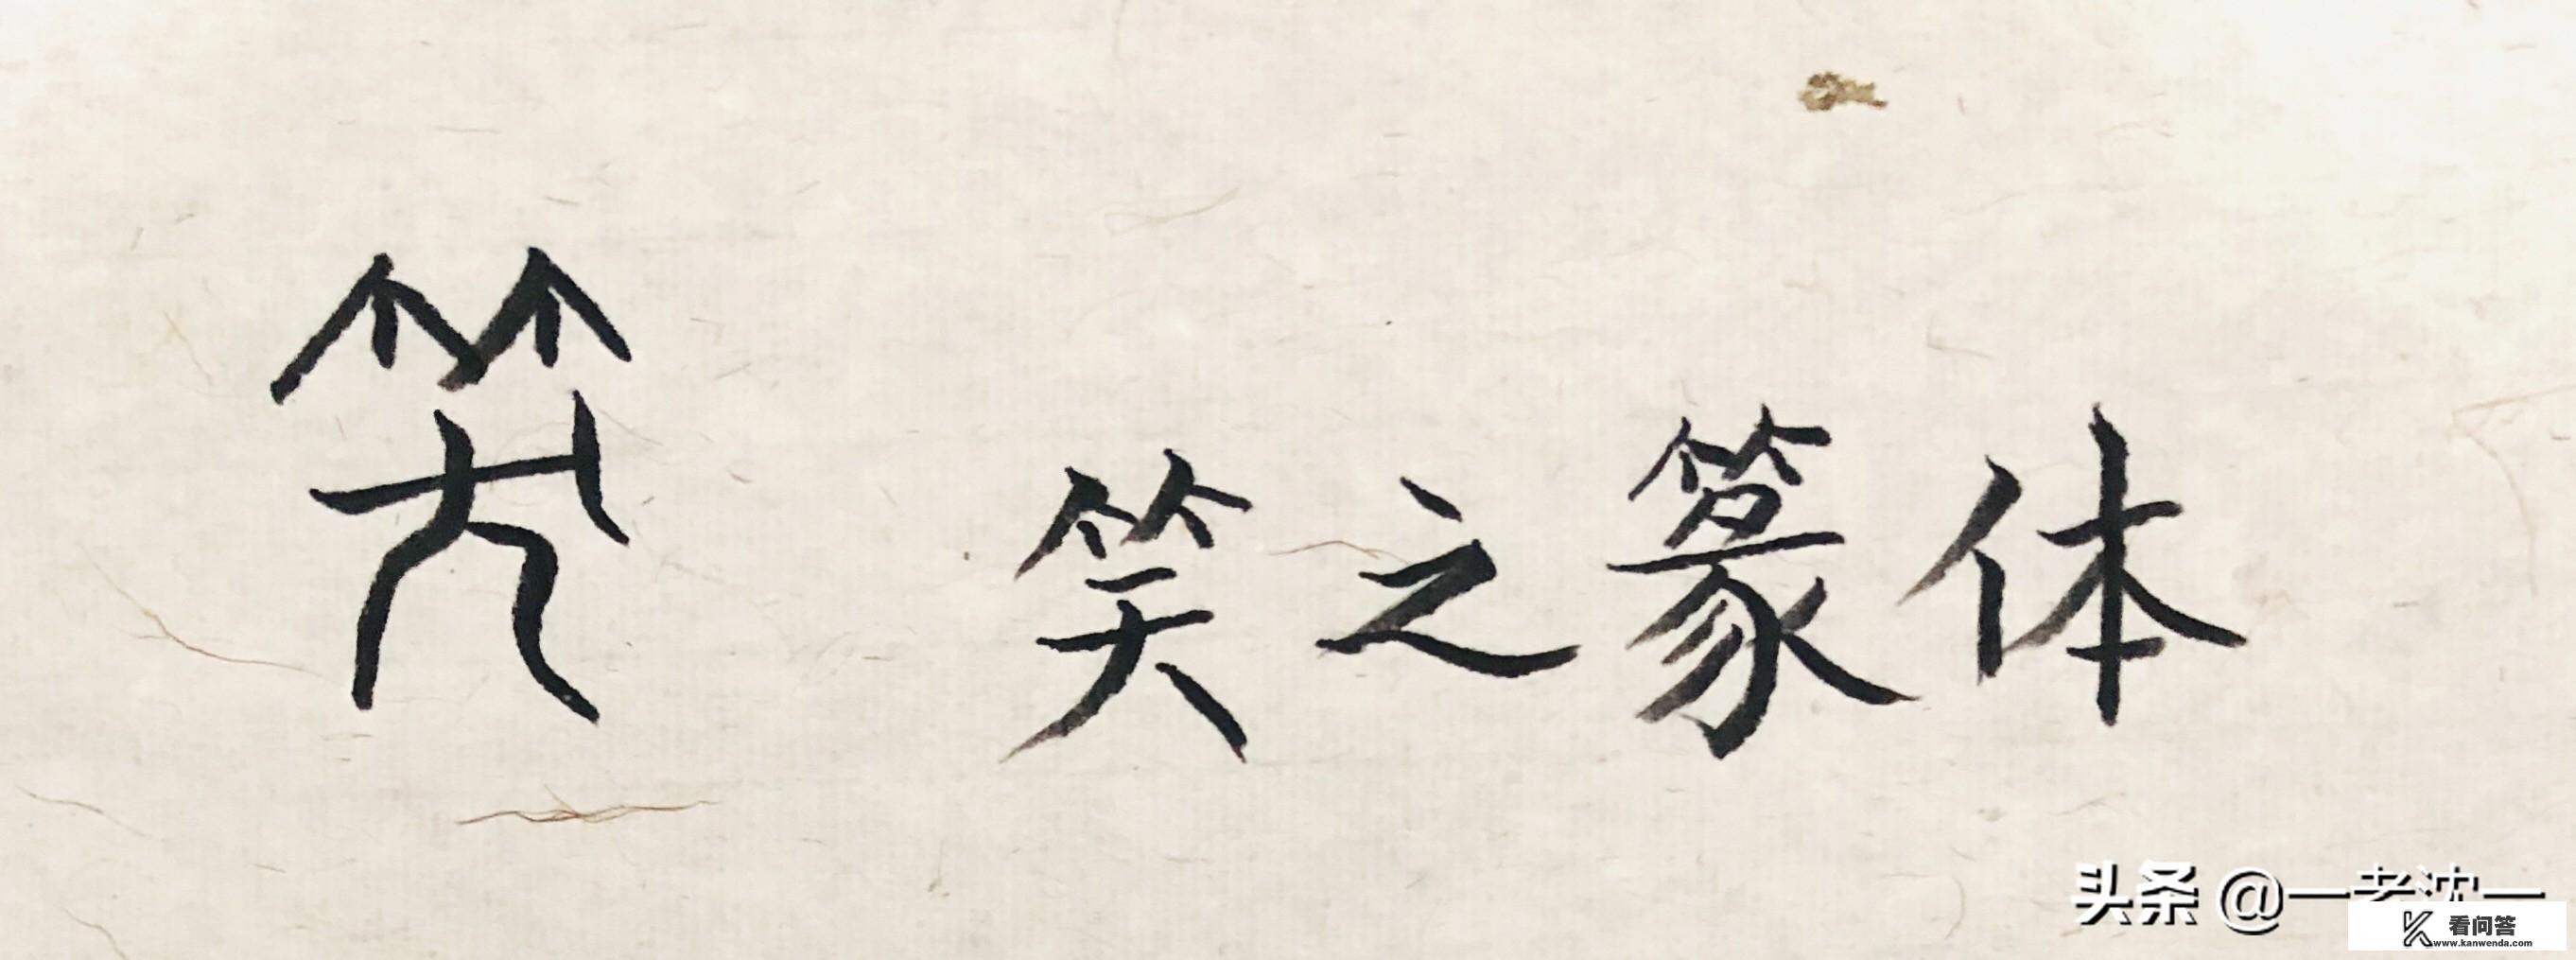 笑 笑之篆体
头条 @一老沈一
看问答
www.kanwenda.com